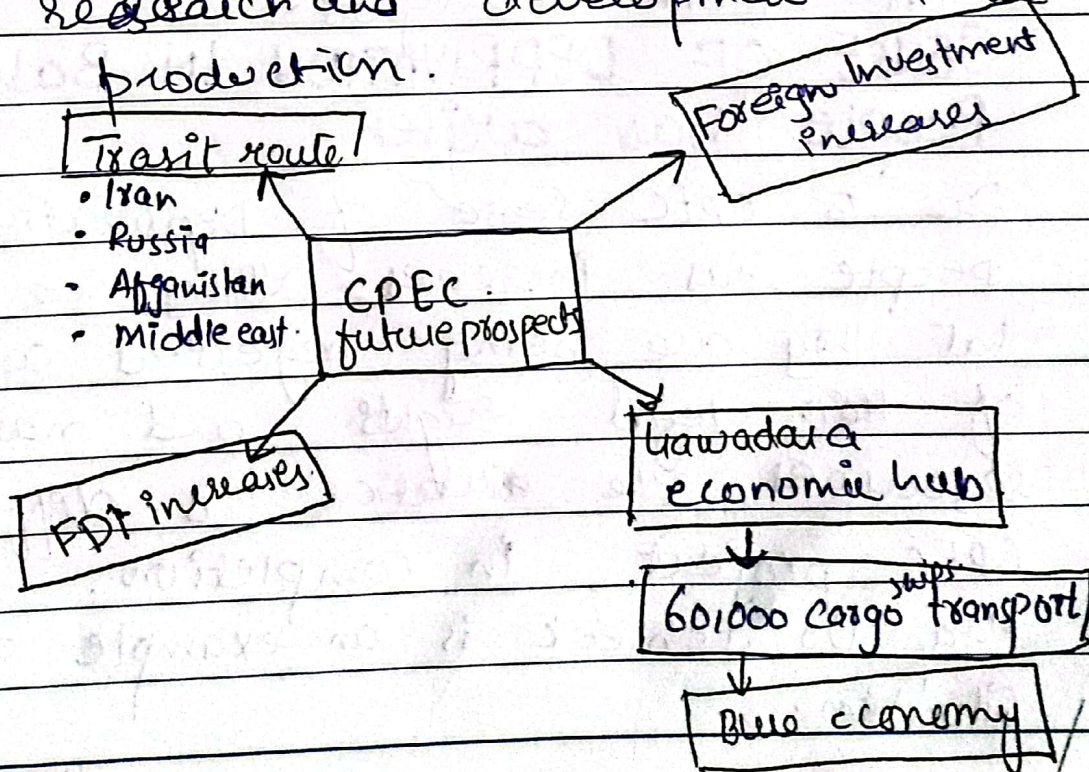 research and development
production.
Trasit route
• Iran
• Russia
• Afganistan
• Middle east.
Foreign Investment
increases
CPEC.
future prospects
FDI increases.
Gawadar a
economic hub
60,000 cargo ships transport
Blue economy